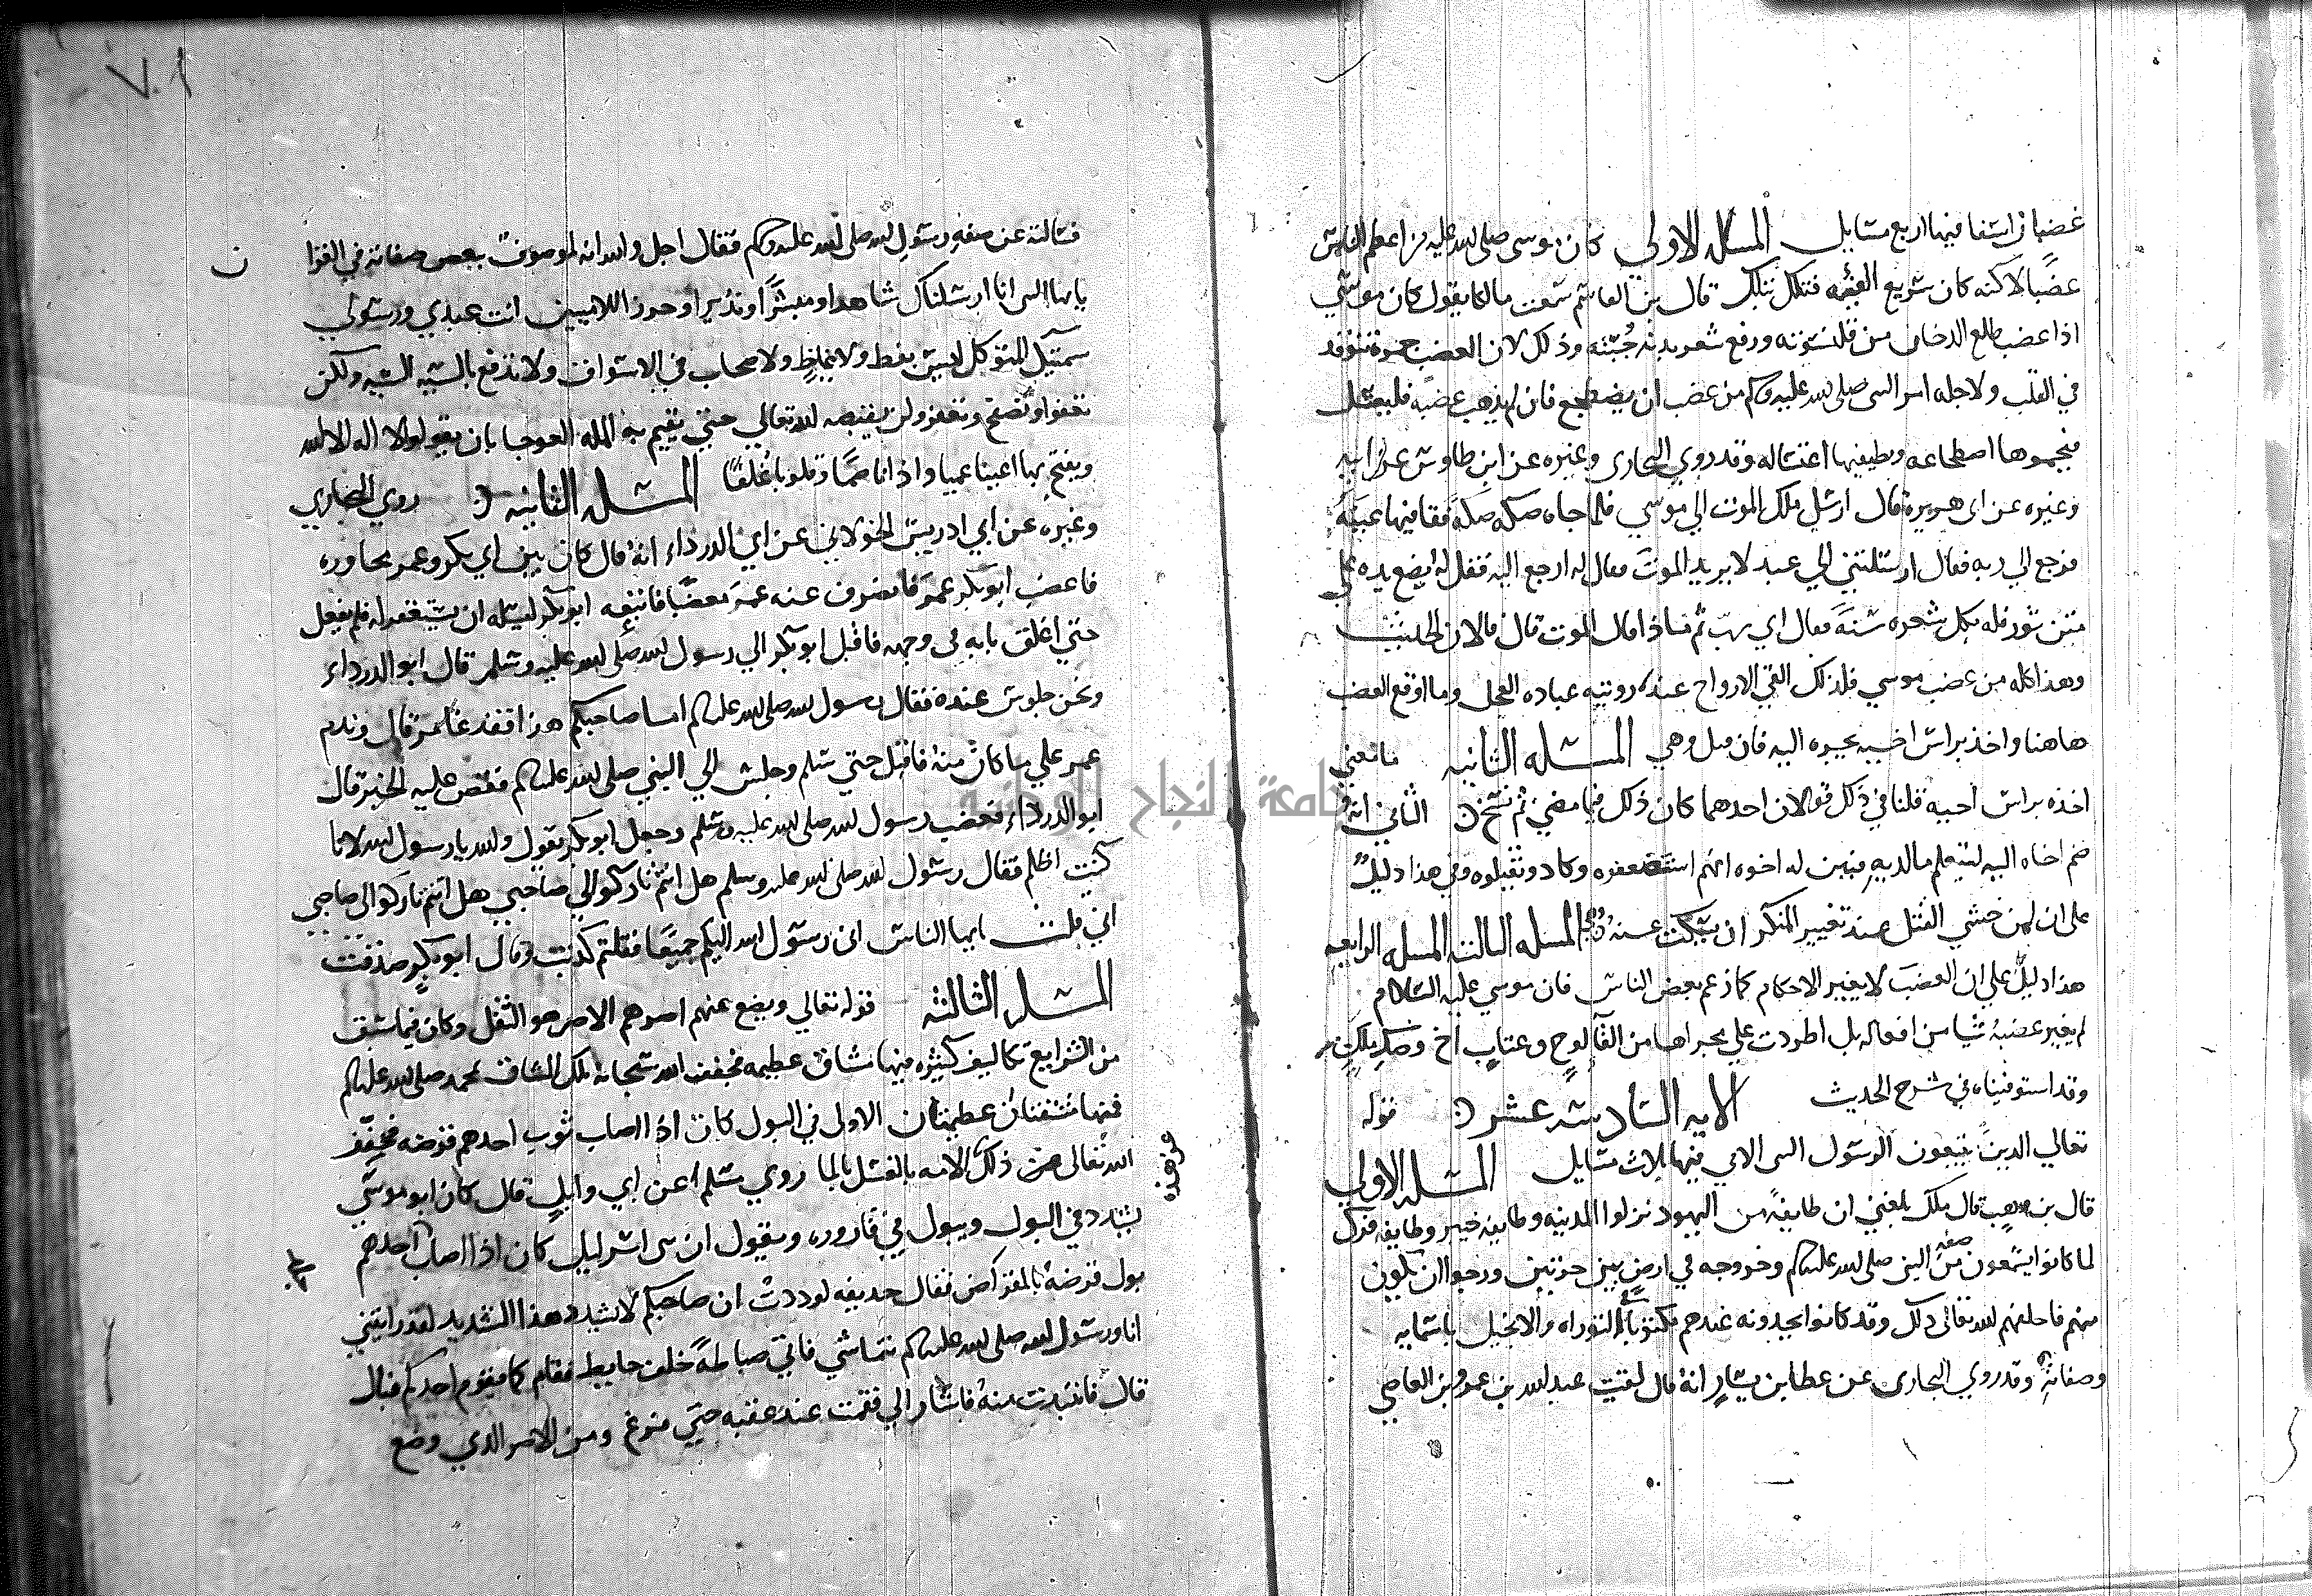 غضبان اسفا فيها اربع مسايل المسله الاولي كان موسى صلى الله عليه من اعظم الناس
غضبا لاكنه كان سريع الفيئه فتلك بتلك قال بن القاسم سمعت مالكا يقول كان موسي
اذا غضب طلع الدخان من قلنسوته ورفع شعر بدنه جبته وذلك لان الغضب جمرة تتوقد
في القلب ولاجله امر النبى صلى الله عليه وسلم من غضب ان يضطجع فان لم يذهب غضبه فليغتسل
فيخمدها اضطجاعه ويطفيها اغتساله وقد روي البخارى وغيره عن ابن طاوس عن ابيه
وغيره عن ابى هريرة قال ارسل ملك الموت الي موسي فلما جاه صكه صكة ففقا فيها عينه
فرجع الي ربه فقال ارسلتني الي عبد لا يريد الموت فقال له ارجع اليه فقل له يضع يده على
متن ثور فله بكل شعره سنة فقال اي رب ثم ماذا قال الموت قال فالان الحديث
وهذا كله من غضب موسي فلذلك القي الالواح عند رويته عباده العجل وما اوقع الغضب
هاهنا واخذ براس اخيه يجره اليه فان قيل وهي المسله الثانيه ما معني
اخذه براس اخيه قلنا في ذلك قولان احدهما كان ذلك فيما مضي ثم نسخ الثاني انه
ضم اخاه اليه ليعلم ما لديه فبين له اخوه انهم استضعفوه وكادو يقتلوه وفي هذا دليل
على ان لمن خشي القتل عند تغيير المنكر ان يسكت عنه المسله الثالثه المسله الرابعه
هذا دليل علي ان الغضب لا يغير الاحكام كما زعم بعض الناس فان موسي عليه السلام
لم يغير غضبه شيا من افعاله بل اطردت علي مجراها من القآ لوح وعتاب اخ وصك ملك
وقد استوفيناه في شرح الحديث الايه السادسه عشر قوله
تعالي الذين يتبعون الرسول النبى الامي فيها ثلاث مسايل المسله الاولي
قال بن وهب قال ملك بلغني ان طايفة من اليهود نزلوا المدينه وطايفه خيبر وطايفه فدك
لما كانوا يسمعون من صفه النبي صلى الله عليه وسلم وخروجه في ارض بين حرتين ورجوا ان يكون
منهم فاخلفهم الله تعالى ذلك وقد كانوا يجدونه عندهم مكتوبا في التوراه والانجيل باسمايه
وصفاته وقد روي البخارى عن عطا بن يسار انه قال لقيت عبد الله بن عمرو بن العاصي
فسالته عن صفه رسول الله صلى الله عليه وسلم فقال اجل والله انه لموصوف ببعض صفاته في القرا ن
يايها النبى انا ارسلناك شاهدا ومبشرا ونذيرا وحرزا للاميين انت عبدي ورسولي
سميتك المتوكل ليس بفظ ولا غليظ ولا صخاب في الاسواق ولا يدفع بالسيه السيه ولكن
يعفوا ويصفح ويغفر ولن يقبضه الله تعالي حتي يقيم به المله العوجا بان يقولوا لا اله الا الله
ويفتح بها اعينا عميا واذانا صما وقلوبا غلفا المسله الثانيه روي البخاري
وغيره عن ابي ادريس الخولاني عن ابي الدرداء انه قال كان بين ابي بكر وعمر محاوره
فاغضب ابو بكر عمر فانصرف عنه عمر مغضبا فاتبعه ابو بكر ليسله ان يستغفر له فلم يفعل
حتي اغلق بابه في وجهه فاقبل ابو بكر الي رسول الله صلى الله عليه وسلم قال ابو الدرداء
ونحن جلوس عنده فقال رسول الله صلى الله عليه وسلم اما صاحبكم هذا فقد غامر قال وندم
عمر علي ما كان منه فاقبل حتي سلم وجلس الي النبي صلى الله عليه وسلم فقص عليه الخبر قال
ابو الدرداء فغضب رسول الله صلى الله عليه وسلم وجعل ابو بكر يقول والله يا رسول الله لانا
كنت اظلم فقال رسول الله صلى الله عليه وسلم هل انتم تاركوا لي صاحبي هل انتم تاركوا لي صاحبي
اني قلت ايها الناس انى رسول الله اليكم جميعا فقلتم كذبت وقال ابو بكر صدقت
المسله الثالثه قوله تعالي ويضع عنهم اصرهم الاصر هو الثقل وكان فيما سبق
من الشرايع تكاليف كثيره فيها مشاق عظيمه فخفف الله سبحانه تلك المشاق لمحمد صلى الله عليه وسلم
فمنها مشقتان عظيمتان الاولى في البول كان اذا اصاب ثوب احدهم قرضه فخفف
الله تعالى عن ذلك الامه بالغسل بالما روي مسلم عن ابي وايل قال كان ابو موسي
يشدد في البول ويبول في قاروره ويقول ان بنى اسرايل كان اذا اصاب احدهم
بول قرضه بالمقراض فقال حذيفه لوددت ان صاحبكم لا يشدد هذا التشديد لقد رايتني
انا ورسول الله صلى الله عليه وسلم نتماشي فاتي صباطة خلف حايط فقام كما يقوم احدكم فبال
قال فانتبذت منه فاشار الي فقمت عند عقبه حتي فرغ ومن الاصر الذي وضع
جامعة النجاح الوطنية